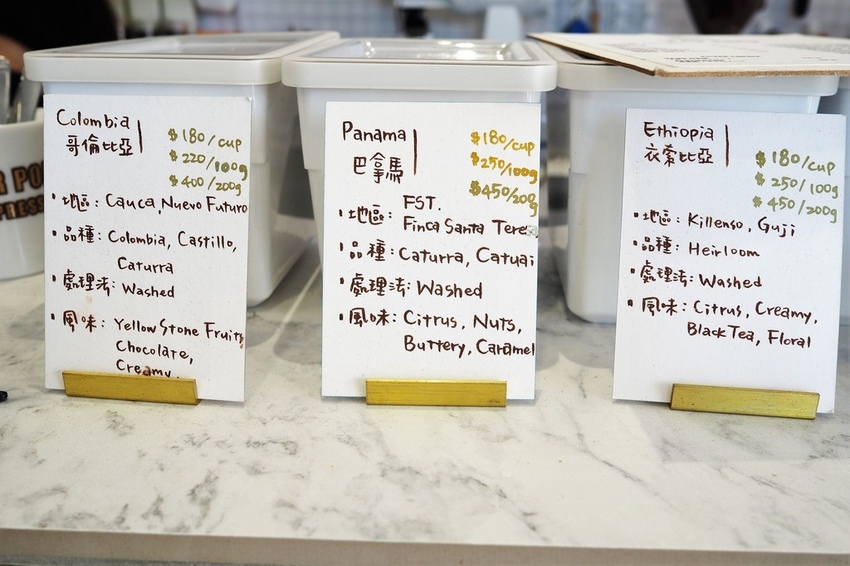 Colombia
哥倫比亞
$180/cup
$220/100g
$400/200g
・地區: Cauca, Nuevo Futuro
・品種: Colombia, Castillo,
Caturra
・處理法: Washed
・風味: Yellow Stone Fruits
Chocolate,
Creamy.
Panama
巴拿馬
$180/cup
$250/100g
$450/200g
・地區: FST.
Finca Santa Teresa
・品種: Caturra, Catuai
・處理法: Washed
・風味: Citrus, Nuts,
Buttery, Caramel
Ethiopia
衣索比亞
$180/cup
$250/100g
$450/200g
・地區: Killenso, Guji
・品種: Heirloom
・處理法: Washed
・風味: Citrus, Creamy,
Black Tea, Floral